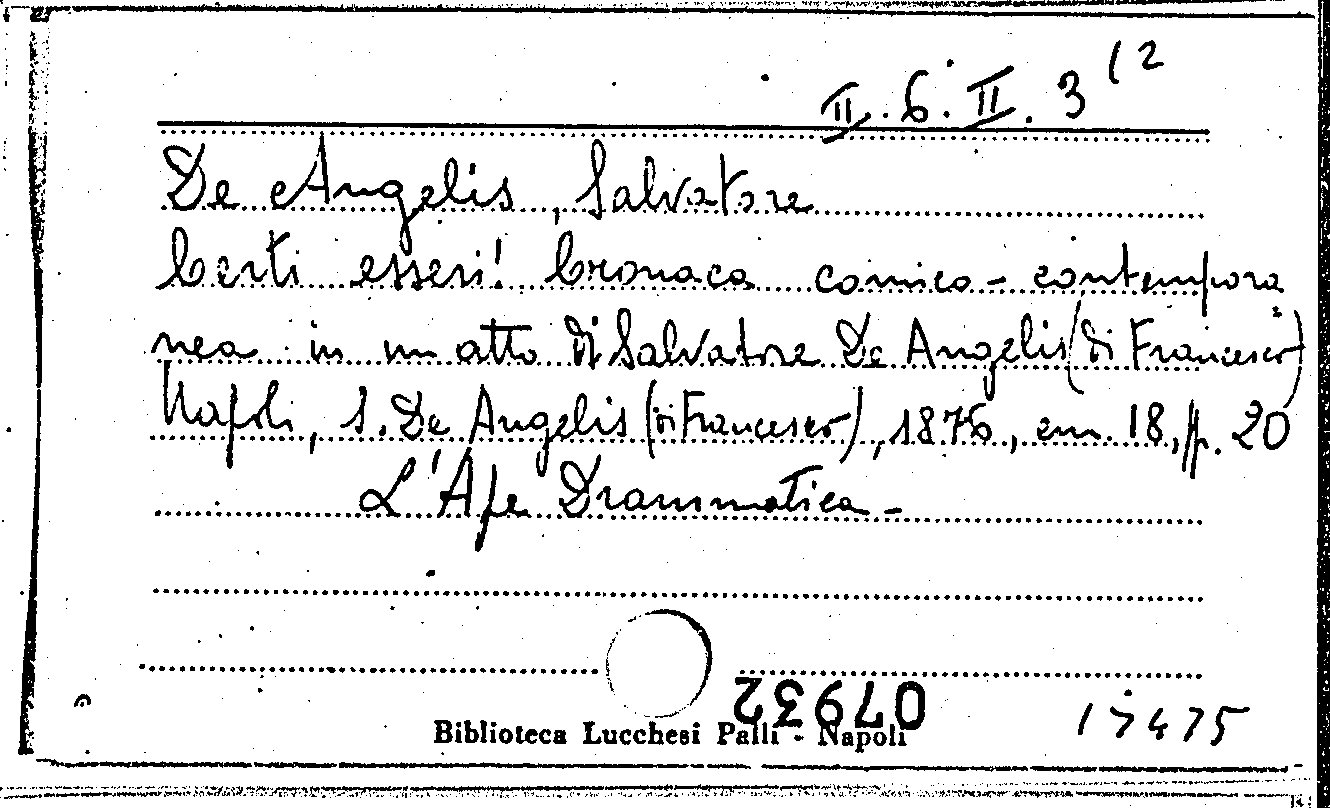 II. 6. II. 3 (2
De Angelis, Salvatore
Certi esseri! Cronaca comico - contempora
nea in un atto di Salvatore De Angelis (di Francesco)
Napoli, S. De Angelis (di Francesco), 1876, em. 18, p. 20
L'Ape Drammatica -
07932
Biblioteca Lucchesi Palli - Napoli
17475